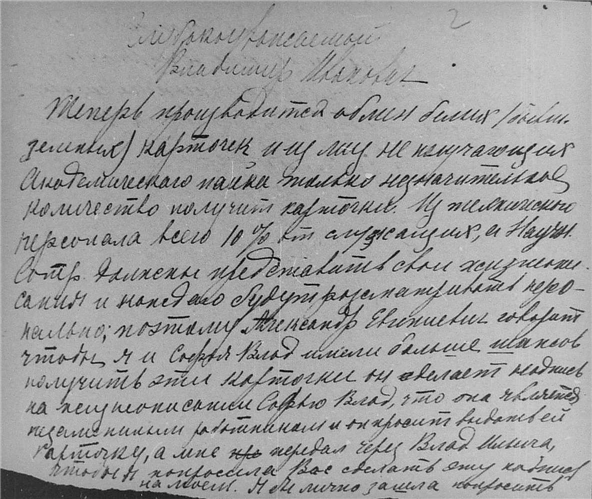 2
Глубокоуважаемый
Владимир Иванович
Теперь производится обмен белых /бывш.
зеленых/ карточек и из лиц не получающих
Академического пайка только незначительное
количество получит карточки. Из технического
персонала всего 10% от служащих, а Научн.
Сотр. должны представить свои жизнеопи-
сания и каждого будут рассматривать персо-
нально; поэтому Александр Евгеньевич говорит
чтобы я и Софья Влад имели больше шансов
получить эти карточки он сделает надпись
на жизнеописании Софьи Влад, что она является
незаменимым работником и он просит выдать ей
карточку, а мне передал через Влад Ильича,
чтобы я попросила Вас сделать эту надпись
на моем. Я лично зашла попросить